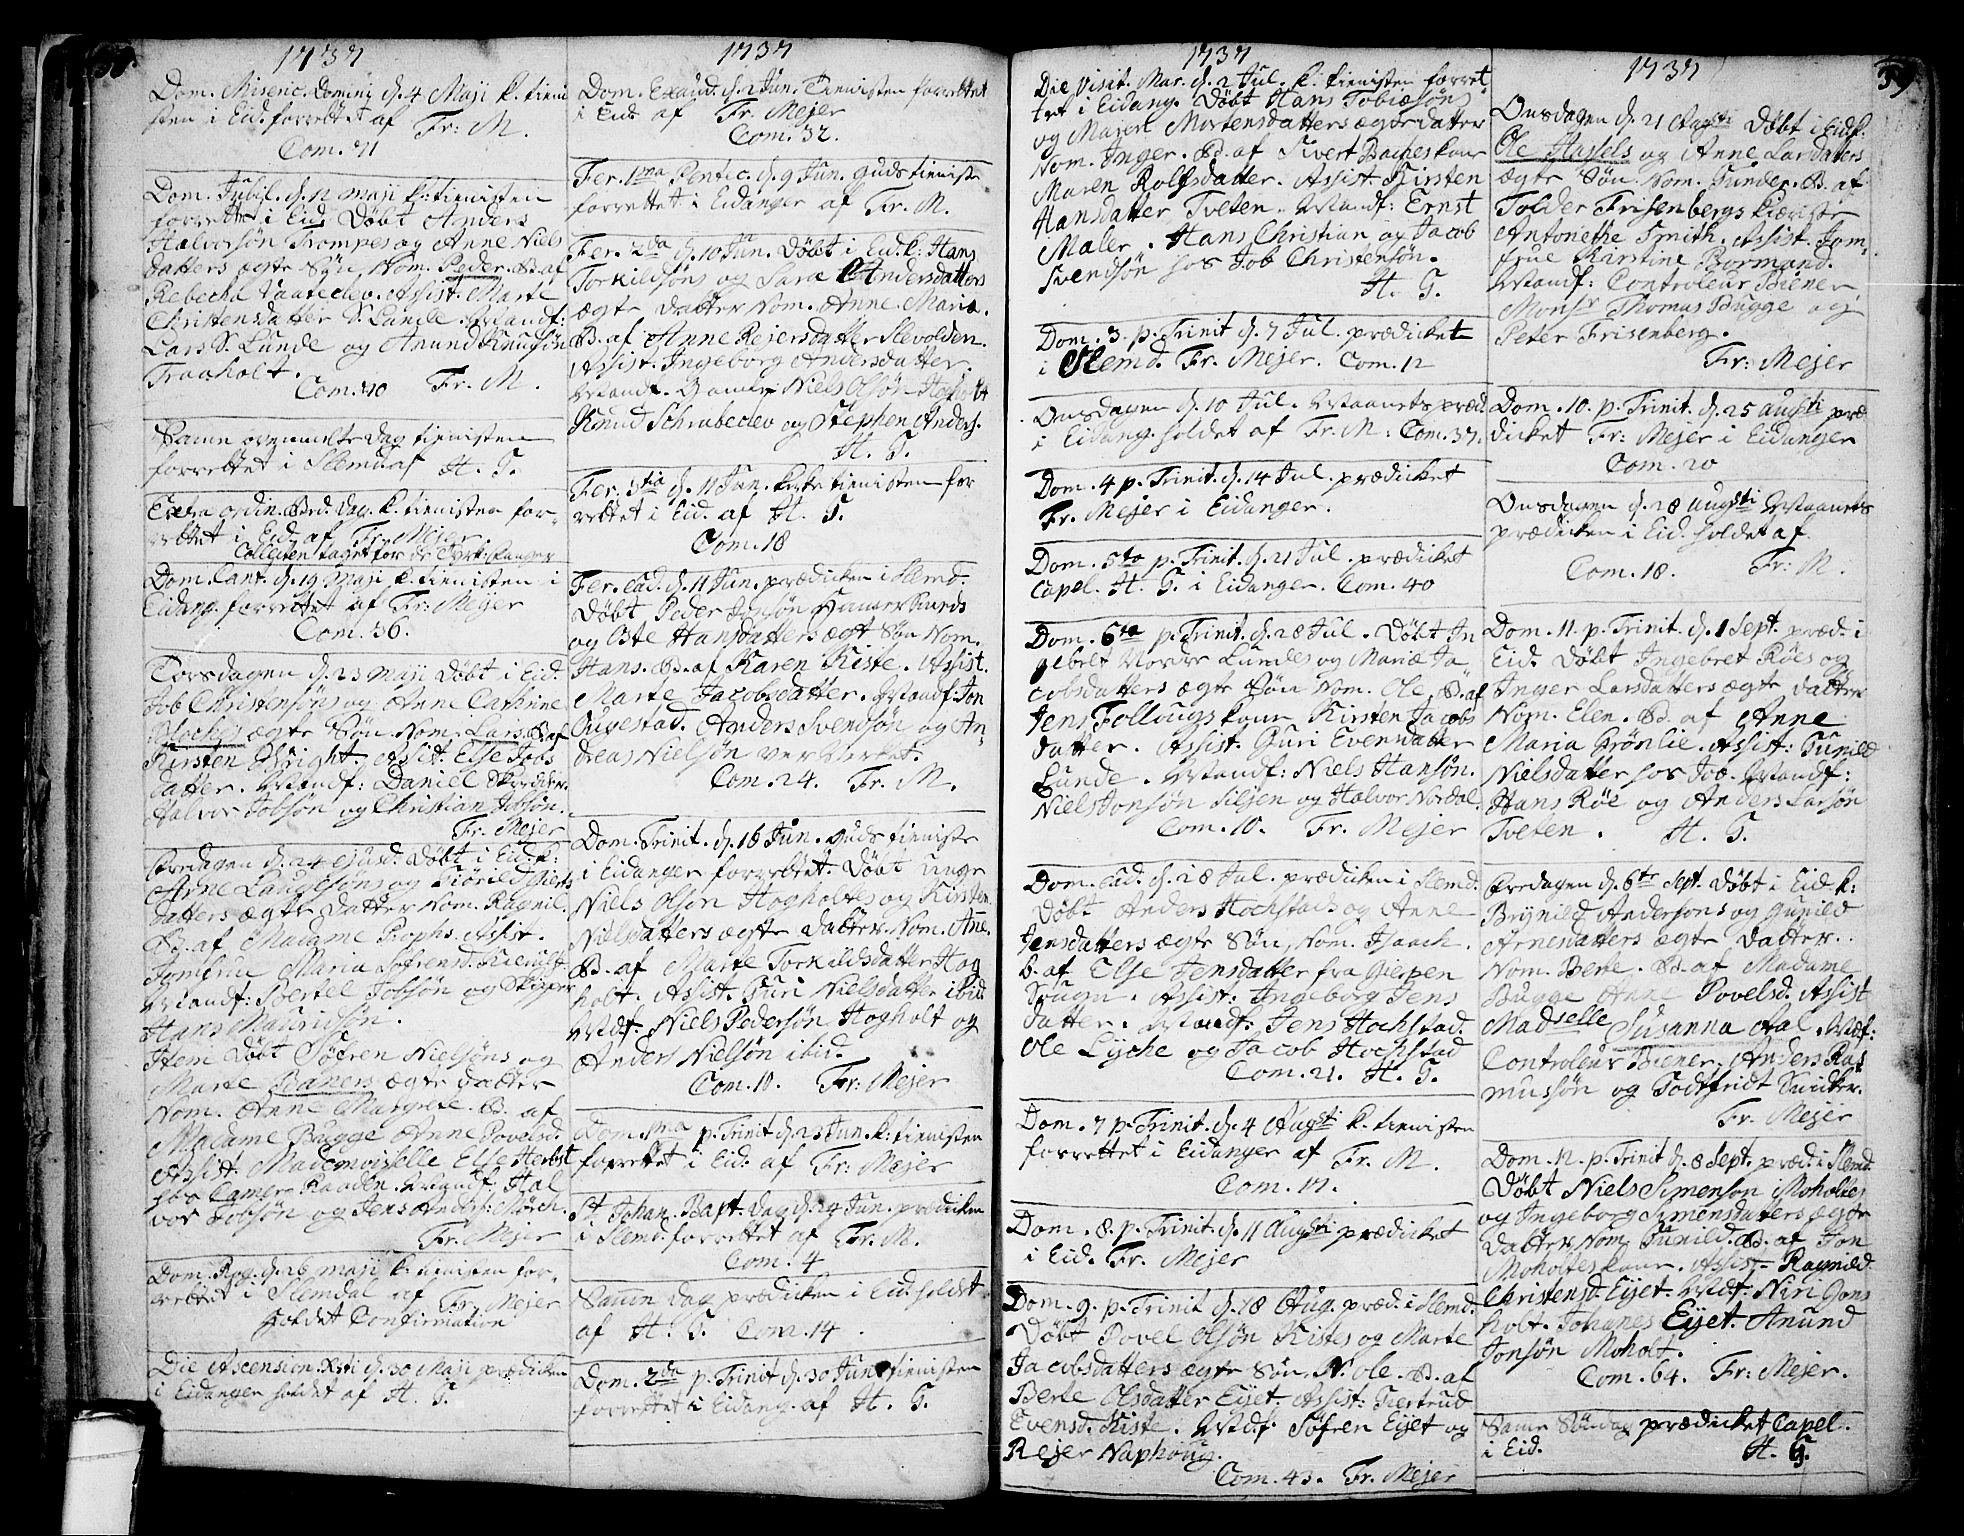 1737
Dom. Miseric. Dominj d. 4 Maji k. tieni
sten i Eid. forrettet af Fr: M.
Com. 71
Dom. Jubil. d. 12 Maji k: tienisten
forrettet i Eid. Döbt Anders
Halvorsön Trompes og Anne Niels
datters ægte Sön Nom. Peder. B. af
Rebecka Assist. Marte
Christensdatter S. Lunde. Vitandf:
Lars S. Lunde og Anund Knudsön
Traaholt.
Com. 70 Fr. M.
Samme dag tienisten
forrettet i Slemd af H. G.
Extra ordin. Bed. dag k. tienisten for-
rettet i Eid. af Fr: Mejer.
Collecten taget for
Dom. Cant. d. 19 Maji k. tienisten i
Eidang. forrettet af Fr: Mejer
Com. 36.
Torsdagen d. 23 Maji Döbt i Eid.
Job Christensöns og Anne Cathrine
Blocks ægte Sön Nom. Lars. B. af
Kirsten Wright. Assist: Else Jobs
datter. Vitandf: Daniel
Halvor Jobsön og Christian Jobsön.
Fr. Mejer
Fredagen d. 24 ejusd. Döbt i Eid. k:
Arne Laugesöns og
datters ægte datter Nom. Ragnil.
B. af Madame Rophs. Assist.
Jomfru Maria Sofrensd.
Vitandf: Bertel Jobsön og Skipper
Hans Mauridsön.
Item Döbt Söfren Nielsöns og
Marte Baners ægte datter
Nom. Anne Margrete. B. af
Madame Bugge Anne Povelsd.
Assist: Mademoiselle Else Herbst
hos Camer Raaden. Vitandf: Hal
vor Jobsön og Jens Anders: Mörch.
Fr. Mejer
Dom. Rog. d. 26 Maji k: tienisten for-
rettet i Slemdal af Fr: Mejer
holdet Confirmation
Die Ascension. Xsti d. 30 Maji prædicken
i Eidanger holdet af H. G.
1737
Dom. Exaud. d. 2 Jun. tienisten forrettet
i Eid. af Fr. Mejer
Com. 32.
Fer. 1ma Pentec. d. 9 Jun. guds tieniste
forrettet i Eidanger af Fr. M.
Fer. 2da d. 10 Jun. Döbt i Eid. k: Hans
Torkildsöns og Sara Andersdatters
ægte datter Nom. Anne Maria.
B. af Anne Rejersdatter Slevolden.
Assist. Ingeborg Andersdatter.
Vitandf. Gamle Niels Olsön Hogholt
Knud Schrubeclev og Stephen Anders.
H. G.
Fer. 3tia d. 11 Jun. kirke tienisten for
rettet i Eid. af H. G.
Com. 18
Fer. ead. d. 11 Jun. prædicken i Slemd.
Döbt Peder Jonsön Hammersmeds
og Hansdatters ægte Sön Nom.
Hans. B. af Karen Kiste. Assist.
Marte Jacobsdatter. Vitandf: Jon
Ougestad. Anders Svendsön og An-
dreas Nielsön
Com. 24. Fr. M.
Dom. Trinit. d. 16 Jun. guds tieniste
i Eidanger forrettet. Döbt unge
Niels Olsön Hogholtes og Kirsten
Nielsdatters ægte datter. Nom. Ane.
B. af Marte Torkildsdatter Hog
holt. Assist. Guri Nielsdatter ibid.
Vitdf: Niels Pedersön Hogholt og
Anders Nielsön ibid.
Com. 11. Fr: Mejer
Dom. 1ma p. Trinit d. 23 Jun. k: tienisten
forrettet i Eid. af Fr: Mejer
St Johan. Bapt. dag d. 24 Jun. prædicken
i Slemd. forrettet af Fr. M.
Com. 4
Samme dag prædicken i Eid. holdet
af H. G. Com. 14.
Dom. 2da p. Trinit d. 30 Jun tienisten
forrettet i Eidang. af H. G.
1737
Die Visit. Mar. d. 2 Jul. k. tienisten forret
tet i Eidang. Döbt Hans Tobiæsöns
og Maren Mortensdatters ægte datter
Nom. Inger. B. af Sivert Baches kone
Maren Rolfsdatter. Assist. Kirsten
Hansdatter Tveten. Vitandf: Ernst
Maler. Hans Christian og Jacob
Svendsön hos Job Christensön.
H. G.
Dom. 3. p. Trinit d. 7 Jul. prædicket
i Slemd. Fr. Mejer. Com. 12
Onsdagen d. 10 Jul. Maanets præd.
i Eidang. holdet af Fr. M: Com. 37.
Dom. 4 p. Trinit. d. 14 Jul. prædicket
Fr. Mejer i Eidanger.
Dom. 5ta p. Trinit. d. 21 Jul. prædicket
Capel. H. G. i Eidanger. Com. 40
Dom. 6ta p. Trinit. d. 28 Jul. Döbt In
gebret Nordre Lundes og Mariæ Ja
cobsdatters ægte Sön Nom. Ole, B. af
Jens Follougs kone Kirsten Jacobs
datter. Assist. Guri Evensdatter
Lunde. Vitandf: Niels Hansön.
Niels Jonsön Siljen og Halvor Nordal
Com. 10. Fr. Mejer
Dom. ead. d. 28 Jul. prædicken i Slemd.
Döbt Anders Hochstads og Anne
Jensdatters ægte Sön, Nom. Isaach.
B. af Else Jensdatter fra Gierpen
Sougn. Assist. Ingeborg Jens
datter. Vitandf: Jens Hochstad.
Ole Lyche og Jacob Hochstad
Com. 21. H. G.
Dom. 7 p. Trinit. d. 4 Augsti k. tienisten
forrettet i Eidanger af Fr. M.
Com. 17.
Dom. 8. p. Trinit. d. 11 Augsti prædicket
i Eid. Fr. Mejer
Dom. 9. p. Trinit d. 18 Aug. præd. i Slemd.
Döbt Povel Olsön Kistes og Marte
Jacobsdatters ægte Sön. N. Ole. B. af
Berte Olsdatter Eijet. Assist: Giertrud
Evensd. Kiste. Vitdf: Söfren Eijet og
Rejer Naphoug.
Com. 43. Fr. Mejer
1737
59
Onsdagen d. 21 Augsti Döbt i Eid k.
Ole Hassels og Anne Larsdatters
ægte Sön. Nom. Gunder. B. af
Tolder Frisenbergs kiæriste
Antonethe Smith. Assist. Jom-
frue Karstine Bormand.
Vitandf: Controleur Biener
Monsr Thomas Bugge og
Peter Frisenberg.
Fr: Mejer
Dom. 10. p. Trinit. d. 25 Augsti præ
dicket Fr: Mejer i Eidanger
Com. 20
Onsdagen d. 28 Augsti Maanets
prædicken i Eid. holdet af
Com. 18. Fr: M.
Dom. 11. p. Trinit. d. 1 Sept. præd. i
Eid. Döbt Ingebret Röes og
Inger Larsdatters ægte datter
Nom. Elen. B. af Anne
Maria Grönlie. Assist: Gunild
Nielsdatter hos Joe. Vitandf:
Hans Röe og Anders Larsön
Tveten. H. G.
Fredagen d. 6te Sept. Döbt i Eid k:
Brynild Andersons og Gunild
Arnesdatters ægte datter.
Nom. Berte. B. af Madame
Bugge Anne Povelsd. Assist
Madselle Susanna Aal. Vitf:
Controleur Biener, Anders Ras
mussön og Godtfridt Snicker.
Fr: Mejer
Dom. 12. p. Trinit d. 8 Sept. præd. i Slemd.
Döbt Niels Simenson Moholtes
og Ingeborg Simensdatters ægte
datter Nom. Gunild. B. af Jon
Moholtes kone. Assist. Ragnild
Christensd. Eijet. Vitdf: Niri Gons
holt. Johanes Eijet. Anund
Jonsön Moholt.
Com. 64. Fr: Mejer.
Samme Söndag prædicket Capel.
i Eid. H. G.